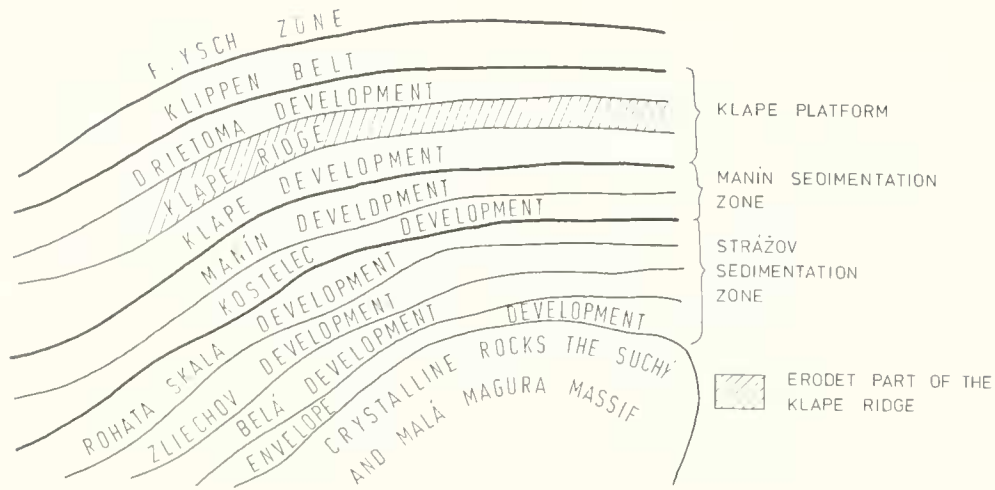 F.YSCH ZONE
KLIPPEN BELT
DRIETOMA DEVELOPMENT
KLAPE RIDGE
KLAPE DEVELOPMENT
MANÍN DEVELOPMENT
KOSTELEC DEVELOPMENT
ROHATA SKALA DEVELOPMENT
ZLIECHOV DEVELOPMENT
BELÁ DEVELOPMENT
ENVELOPE DEVELOPMENT
CRYSTALLINE ROCKS THE SUCHÝ
AND MALÁ MAGURA MASSIF
KLAPE PLATFORM
MANÍN SEDIMENTATION
ZONE
STRÁŽOV
SEDIMENTATION
ZONE
ERODET PART OF THE
KLAPE RIDGE